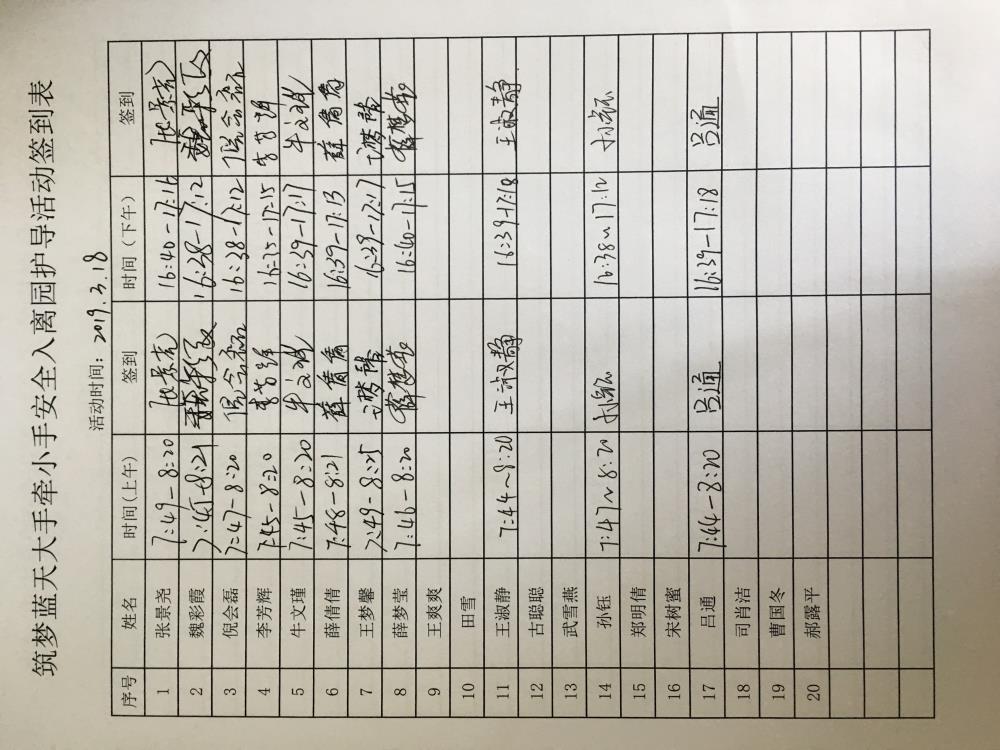 筑梦蓝天大手牵小手安全入离园护导活动签到表
活动时间：2019.3.18
序号 姓名 时间(上午) 签到 时间（下午） 签到
1 张景尧 7:49-8:20 张景尧 16:40-17:16 张景尧
2 魏彩霞 7:45-8:21 魏彩霞 16:38-17:12 魏彩霞
3 倪会磊 7:47-8:20 倪会磊 16:38-17:12 倪会磊
4 李芳辉 7:45-8:20 李芳辉 16:35-17:15 李芳辉
5 牛文瑾 7:45-8:20 牛文瑾 16:39-17:17 牛文瑾
6 薛倩倩 7:48-8:21 薛倩倩 16:39-17:13 薛倩倩
7 王梦馨 7:49-8:25 王梦馨 16:39-17:17 王梦馨
8 薛梦莹 7:46-8:20 薛梦莹 16:40-17:15 薛梦莹
9 王爽爽
10 田雪
11 王淑静 7:44~8:20 王淑静 16:39-17:18 王淑静
12 古聪聪
13 武雪燕
14 孙钰 7:47~8:20 孙钰 16:38~17:12 孙钰
15 郑明倩
16 宋树蜜
17 吕通 7:44-8:20 吕通 16:39-17:18 吕通
18 司肖洁
19 曹国冬
20 郝露平